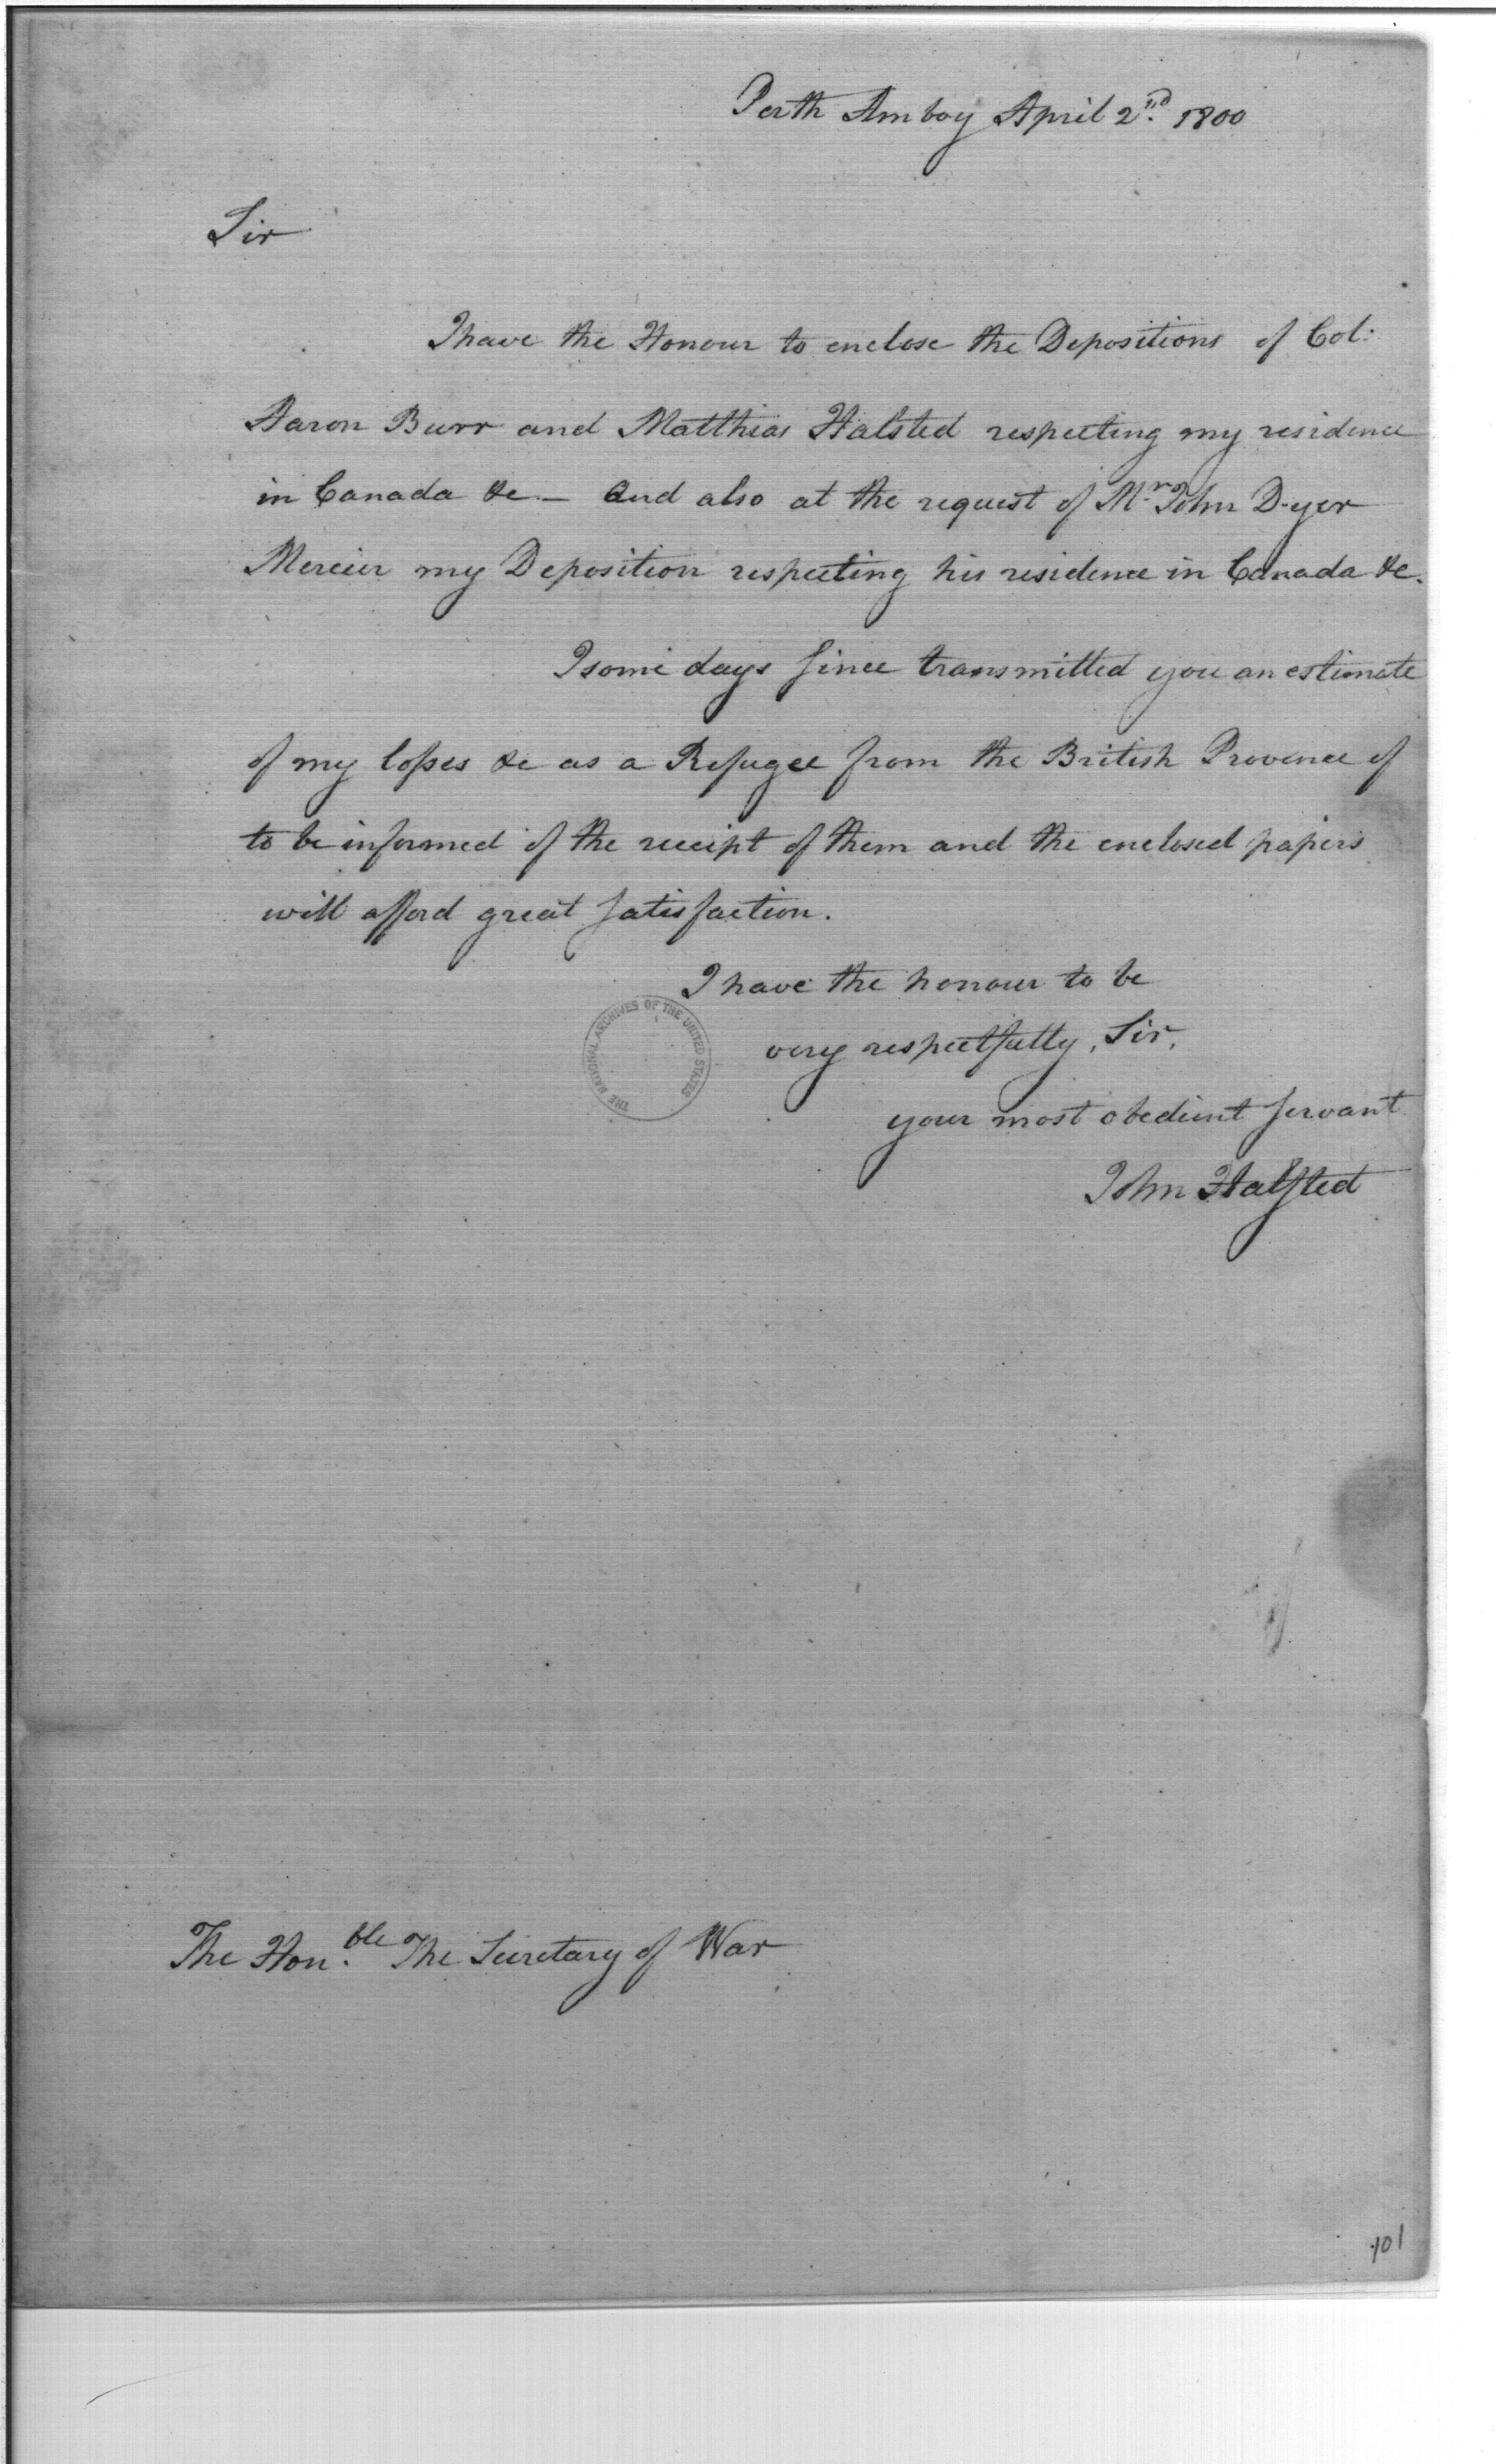 Perth Amboy April 2nd. 1800
Sir
I have the Honour to enclose the Depositions of Col:
Aaron Burr and Matthias Halsted respecting my residence
in Canada &c — And also at the request of Mr. John Dyer
Mercier my Deposition respecting his residence in Canada &c.
I some days since transmitted you an estimate
of my losses &c as a Refugee from the British Province of
to be informed of the receipt of them and the enclosed papers
will afford great satisfaction.
I have the honour to be
very respectfully, Sir,
your most obedient servant
John Halsted
THE NATIONAL ARCHIVES OF THE UNITED STATES
The Honble. The Secretary of War
101